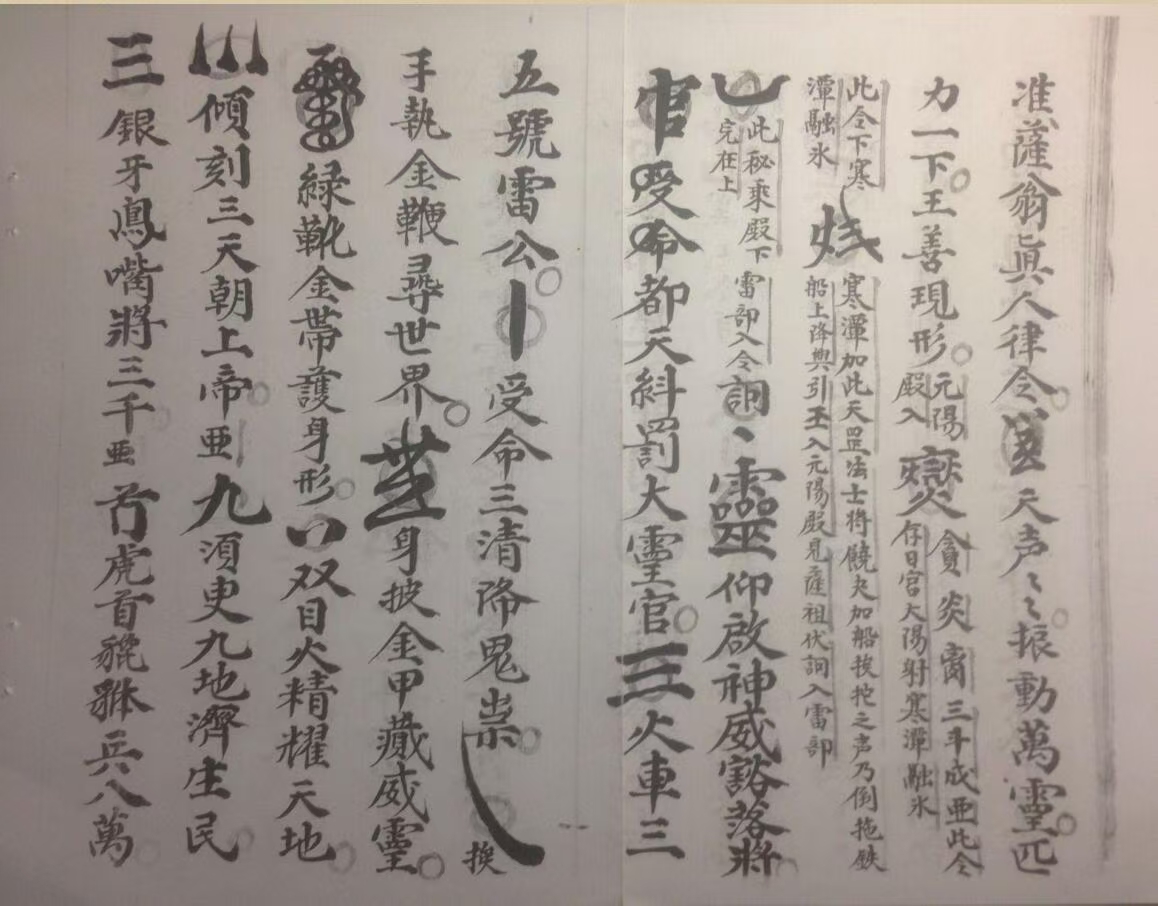 准薩翁眞人律令
天声〻振動萬靈匹
力一下王善現形
元陽
殿入
貪炎
三斗成亜此令
存日宮大陽射寒潭融氷
此令下寒
潭融氷
寒潭加此天罡法士将饒夬加船挨扡之声乃倒拖鉄
船上降輿引丕入元陽殿見薩祖伏詞入雷部
此秘乘殿下
完在上
雷部入令
詞、靈仰啟神威豁落將
官受命都天糾罰大靈官三火車三
五號雷公
受命三清降鬼祟
挨
手執金鞭尋世界
身披金甲藏威靈
綠靴金帶護身形
双目火精耀天地
傾刻三天朝上帝亜九須臾九地濟生民
三銀牙鳥嘴將三千亜
虎首貔貅兵八萬